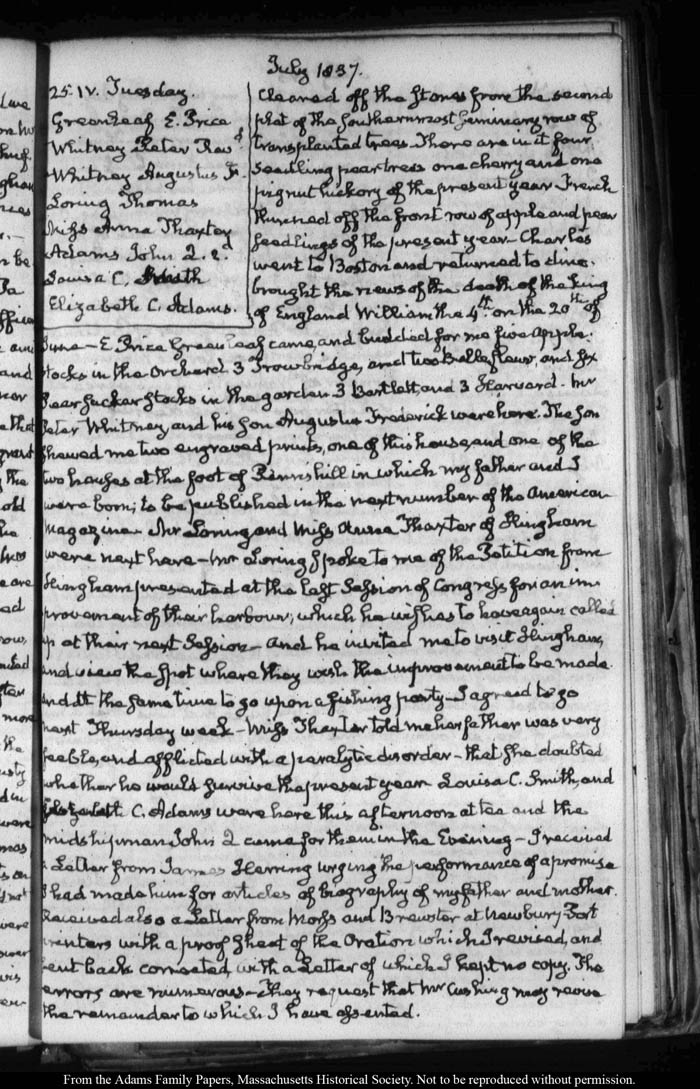 July 1837.
25. IV. Tuesday.
Greenleaf E. Price
Whitney Peter Revd
Whitney Augustus F.
Loring Thomas
Miss Anna Thaxter
Adams John 2. 2d
Louisa C. Smith
Elizabeth C. Adams.
Cleared off the stones from the second
plat of the southernmost Seminary row of
transplanted trees. There are in it four
Seedling pear trees one cherry and one
pignut hickory of the present year French
thinned off the front row of apple and pear
seedlings of the present year— Charles
went to Boston and returned to dine.
brought the news of the death of the King
of England William the 4th on the 20th of
June— E Price Greenleaf came, and budded for me five Apple
stocks in the orchard 3 Trowbridge, and two Belleflower, and six
Pear sucker stocks in the garden 3 Bartlett, and 3 Harvard. Mr
Peter Whitney and his son Augustus Frederick were here. The son
shewed me two engraved prints, one of this house, and one of the
two houses at the foot of Penn's hill in which my father and I
were born; to be published in the next number of the American
Magazine. Mr Loring and Miss Anna Thaxter of Hingham
were next here— Mr Loring spoke to me of the Petition from
Hingham presented at the last Session of Congress for an im
provement of their harbour; which he wishes to have again called
up at their next Session— and he invited me to visit Hingham,
and view the spot where they wish the improvement to be made
and at the same time to go upon a fishing party— I agreed to go
next Thursday week— Miss Thaxter told me her father was very
feeble, and afflicted with a paralytic disorder— that she doubted
whether he would survive the present year. Louisa C. Smith, and
Elizabeth C. Adams were here this afternoon at tea and the
midshipman John 2 came for them in the Evening— I received
a Letter from James Herring urging the performance of a promise
I had made him for articles of biography of my father and mother.
Received also a Letter from Morss and Brewster at Newbury Port
printers with a proof sheet of the Oration which I revised, and
sent back corrected, with a Letter of which I kept no copy. The
errors are numerous— They request that Mr Cushing may revise
the remainder to which I have assented.
From the Adams Family Papers, Massachusetts Historical Society. Not to be reproduced without permission.